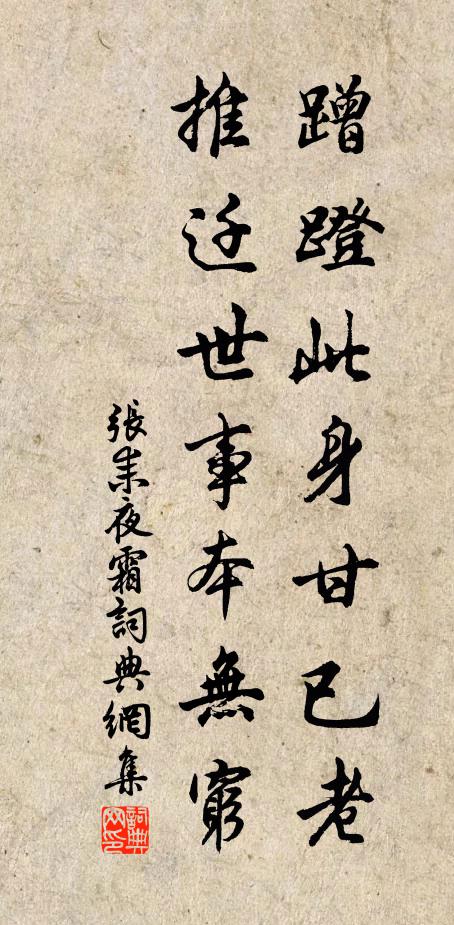 蹭蹬此身甘已老
推迁世事本無窮
張耒夜霜詞典網集
詞典网印